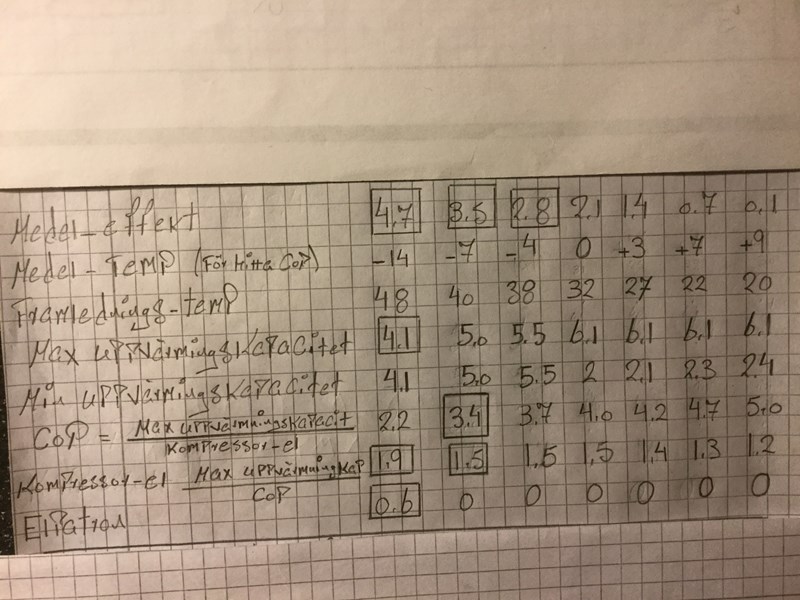 Medel-effekt 4.7 3.5 2.8 2.1 1.4 0.7 0.1
Medel-Temp (För Hitta CoP) -14 -7 -4 0 +3 +7 +9
Framlednings-temp 48 40 38 32 27 22 20
Max uppvärmingskapacitet 4.1 5.0 5.5 6.1 6.1 6.1 6.1
Min uppvärmingskapacitet 4.1 5.0 5.5 2 2.1 2.3 2.4
CoP = Max uppvärmningskapacit / Kompressor-el 2.2 3.4 3.7 4.0 4.2 4.7 5.0
Kompressor-el Max uppvärmningkap / CoP 1.9 1.5 1.5 1.5 1.4 1.3 1.2
Elpatron 0.6 0 0 0 0 0 0